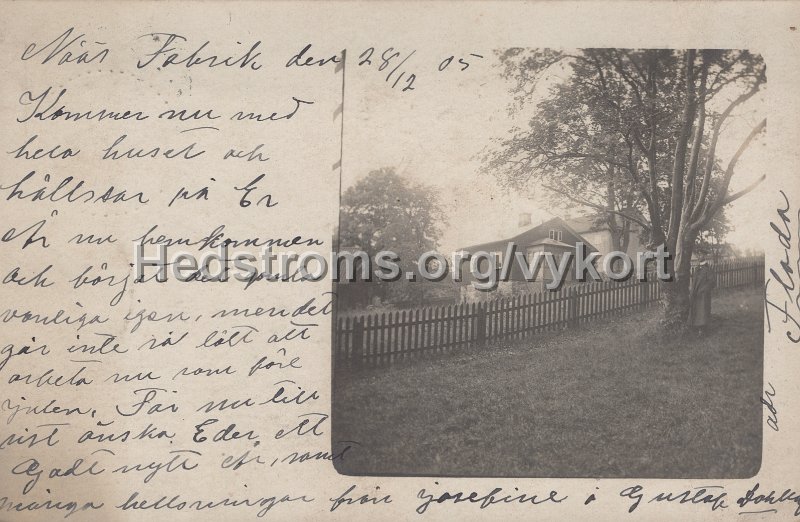 Nääs Fabrik den 28/12 05
Kommer nu med
hela huset och
hällssar på Er
är nu hemkommen
och börjat det
vanliga igen, men det
går inte så lätt att
arbeta nu som före
julen, Får nu till
sist önska Eder ett
Godt nytt år, samt
många hellsningar från Josefine o Gustaf
adr Floda
Hedstroms.org/vykort